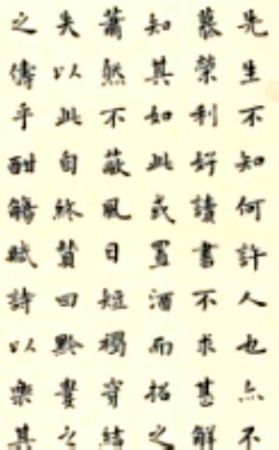 先生不知何許人也亦不
慕榮利好讀書不求甚解
知其如此或置酒而招之
蕭然不蔽風日短褐穿結
失以此自終贊曰黔婁之
之儔乎酣觴賦詩以樂其